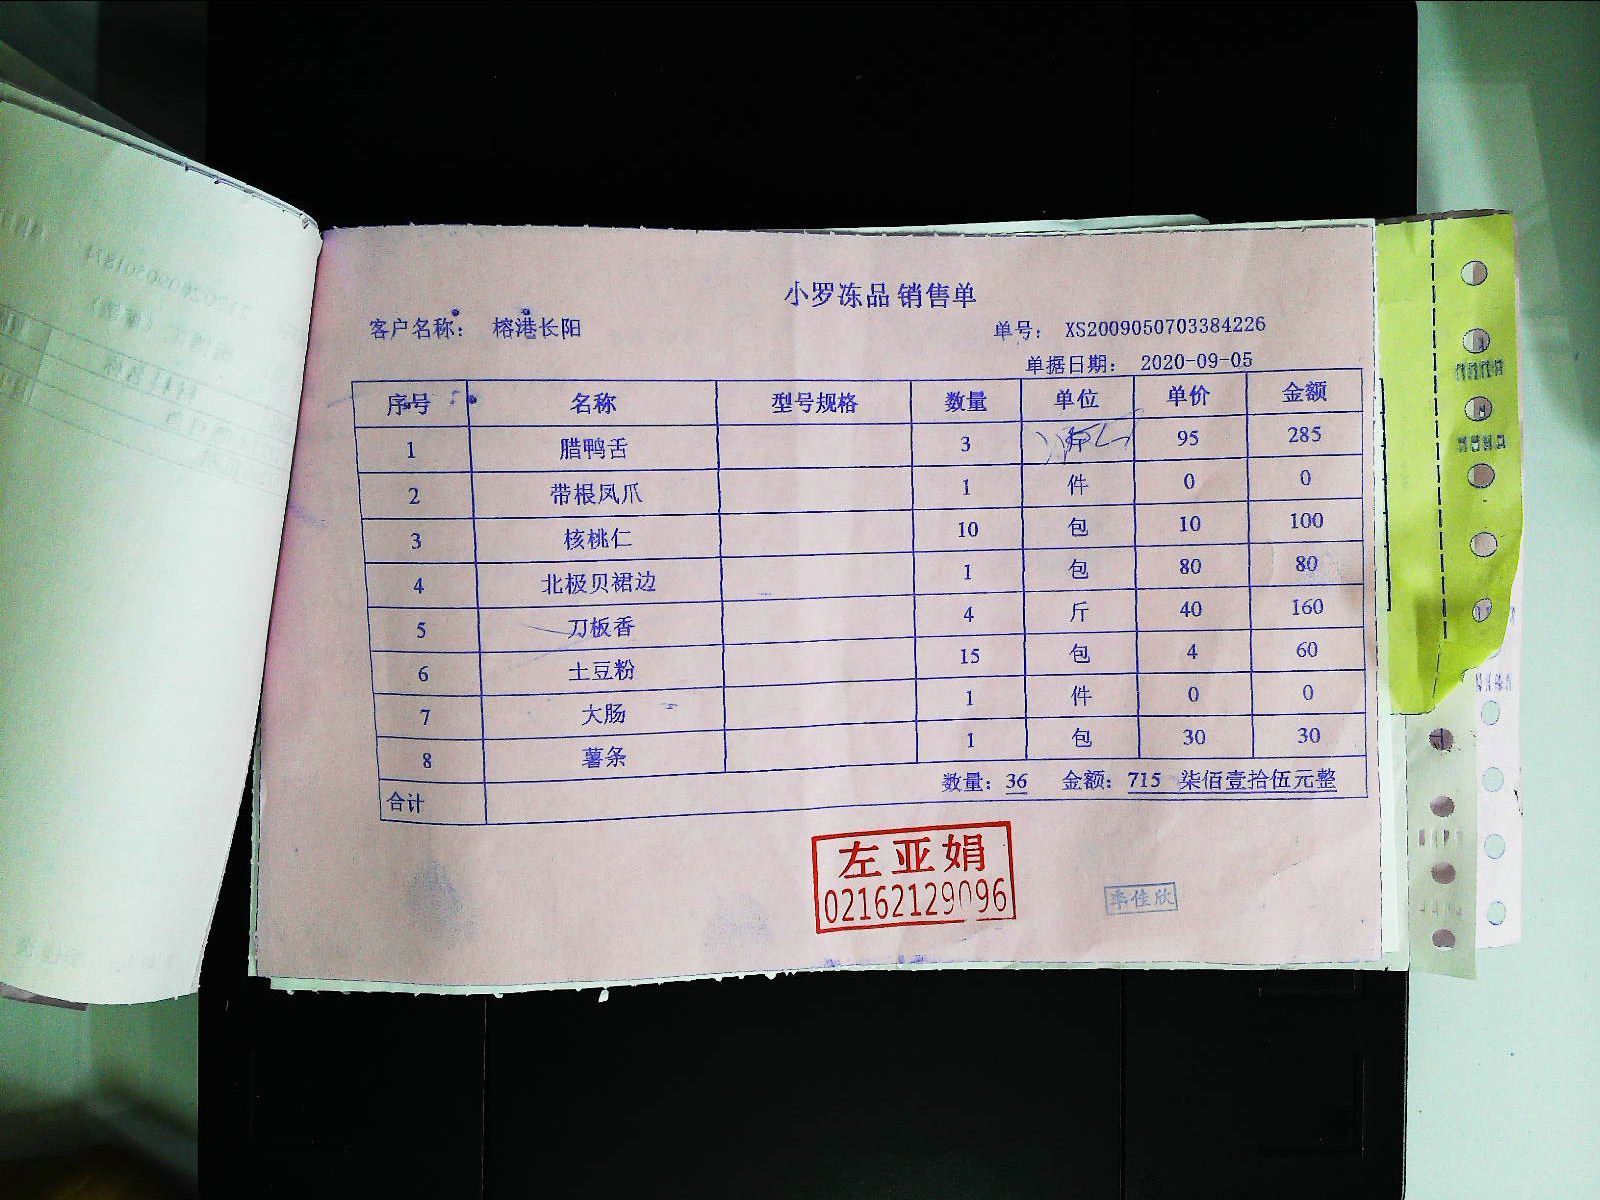 小罗冻品 销售单
客户名称： 榕港长阳 单号： XS2009050703384226
单据日期： 2020-09-05
序号 名称 型号规格 数量 单位 单价 金额
1 腊鸭舌 3 95 285
2 带根凤爪 1 件 0 0
3 核桃仁 10 包 10 100
4 北极贝裙边 1 包 80 80
5 刀板香 4 斤 40 160
6 土豆粉 15 包 4 60
7 大肠 1 件 0 0
8 薯条 1 包 30 30
合计 数量：36 金额：715 柒佰壹拾伍元整
左亚娟
02162129096
季佳欣